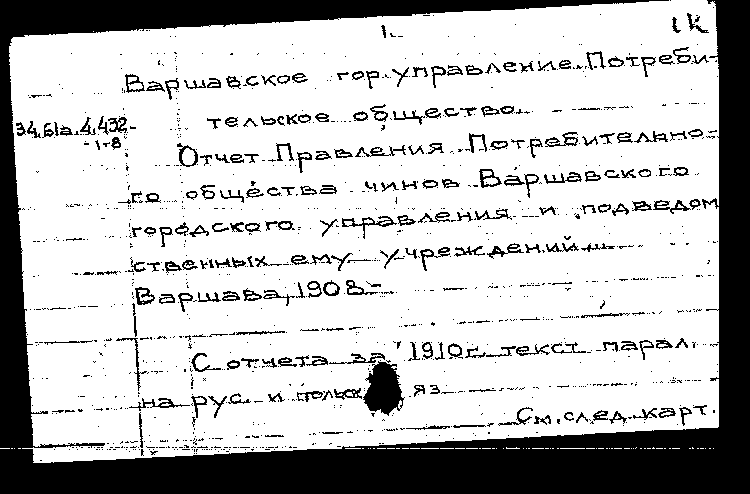 1.
1К
Варшавское гор. управление. Потреби-
тельское общество.
34.61а.4.432-
-1-8
Отчет Правления Потребительно-
го общества чинов Варшавского
городского управления и подведом
ственных ему учреждений...
Варшава, 1908.-
С отчета за 1910г. текст парал.
на рус. и польск яз
См. след. карт.